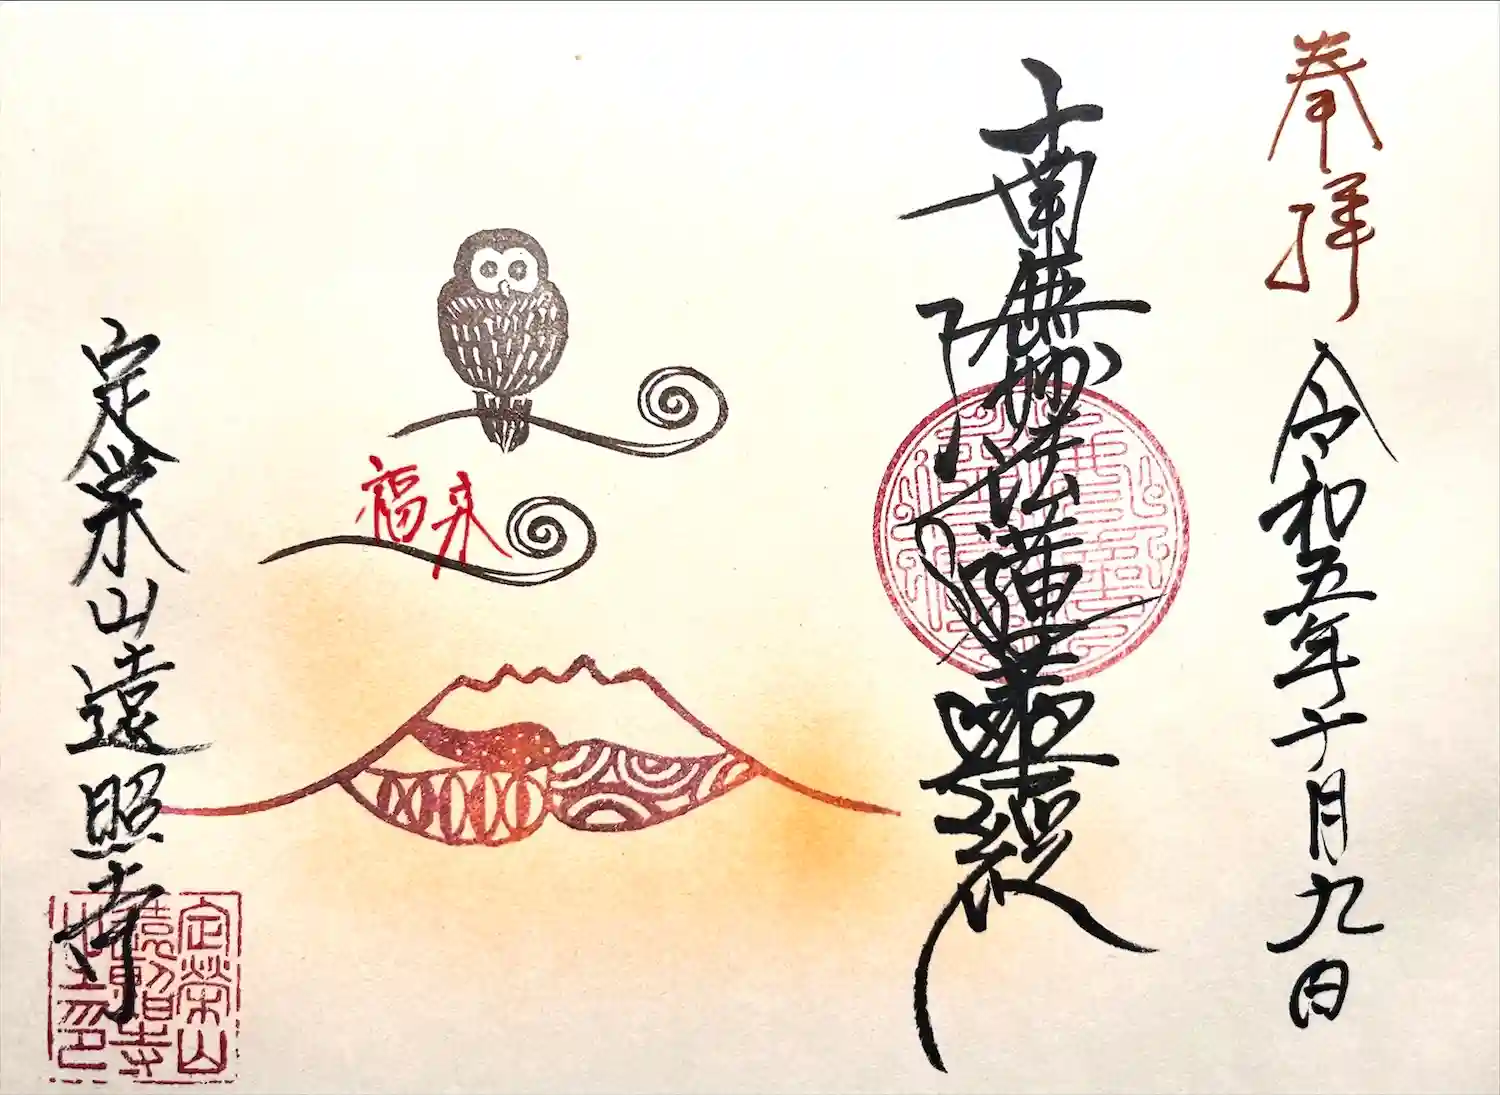 奉拝
令和五年十月九日
南無妙法蓮華経
福来
定栄山遠照寺
定榮山
遠照寺